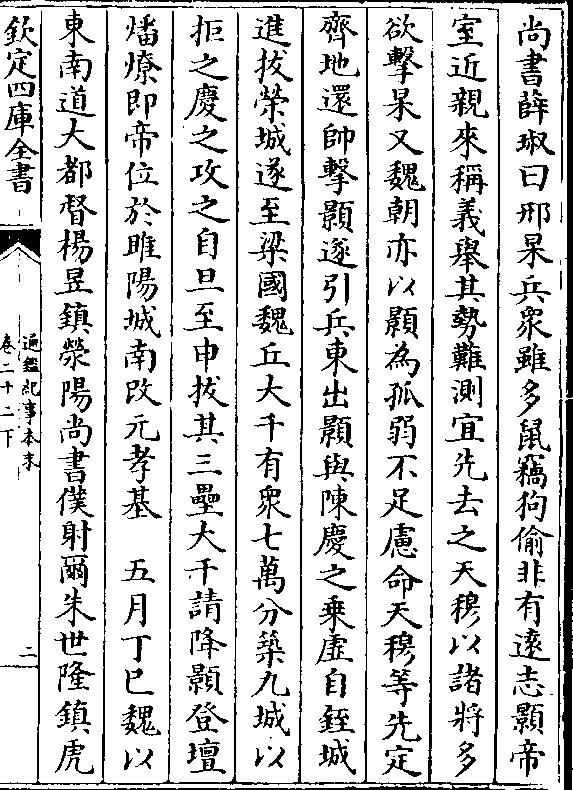 尚書薛琡曰邢杲兵衆雖多鼠竊狗偷非有遠志顥帝
室近親來稱義舉其勢難測宜先去之天穆以諸將多
欲擊杲又魏朝亦以顥為孤弱不足慮命天穆等先定
齊地還帥擊顥遂引兵東出顥與陳慶之乗虛自銍城
進拔榮城遂至梁國魏丘大千有衆七萬分築九城以
拒之慶之攻之自旦至申拔其三壘大千請降顥登壇
燔燎即帝位於睢陽城南改元孝基　五月丁巳魏以
東南道大都督楊昱鎮滎陽尚書僕射爾朱世隆鎮虎
欽定四庫全書
通鑑紀事本末
卷二十二下
二